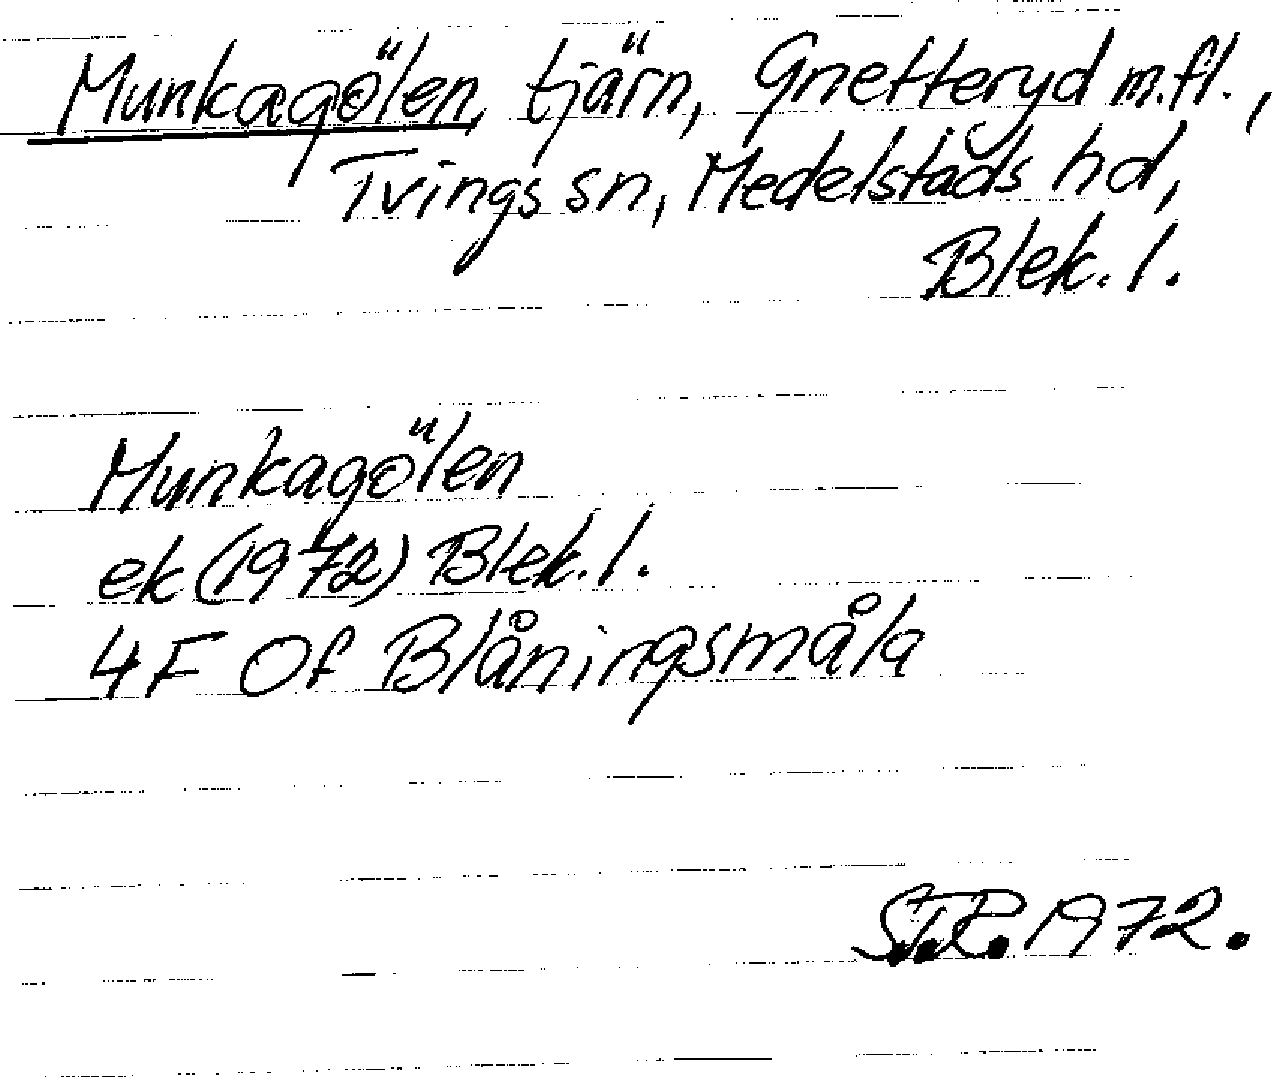 Munkagölen, tjärn, Gnetteryd m.fl.,
Tvings sn, Medelstads hd,
Blek. l.
Munkagölen
ek (1972) Blek. l.
4F 0f Blåningsmåla
S.T.R. 1972.